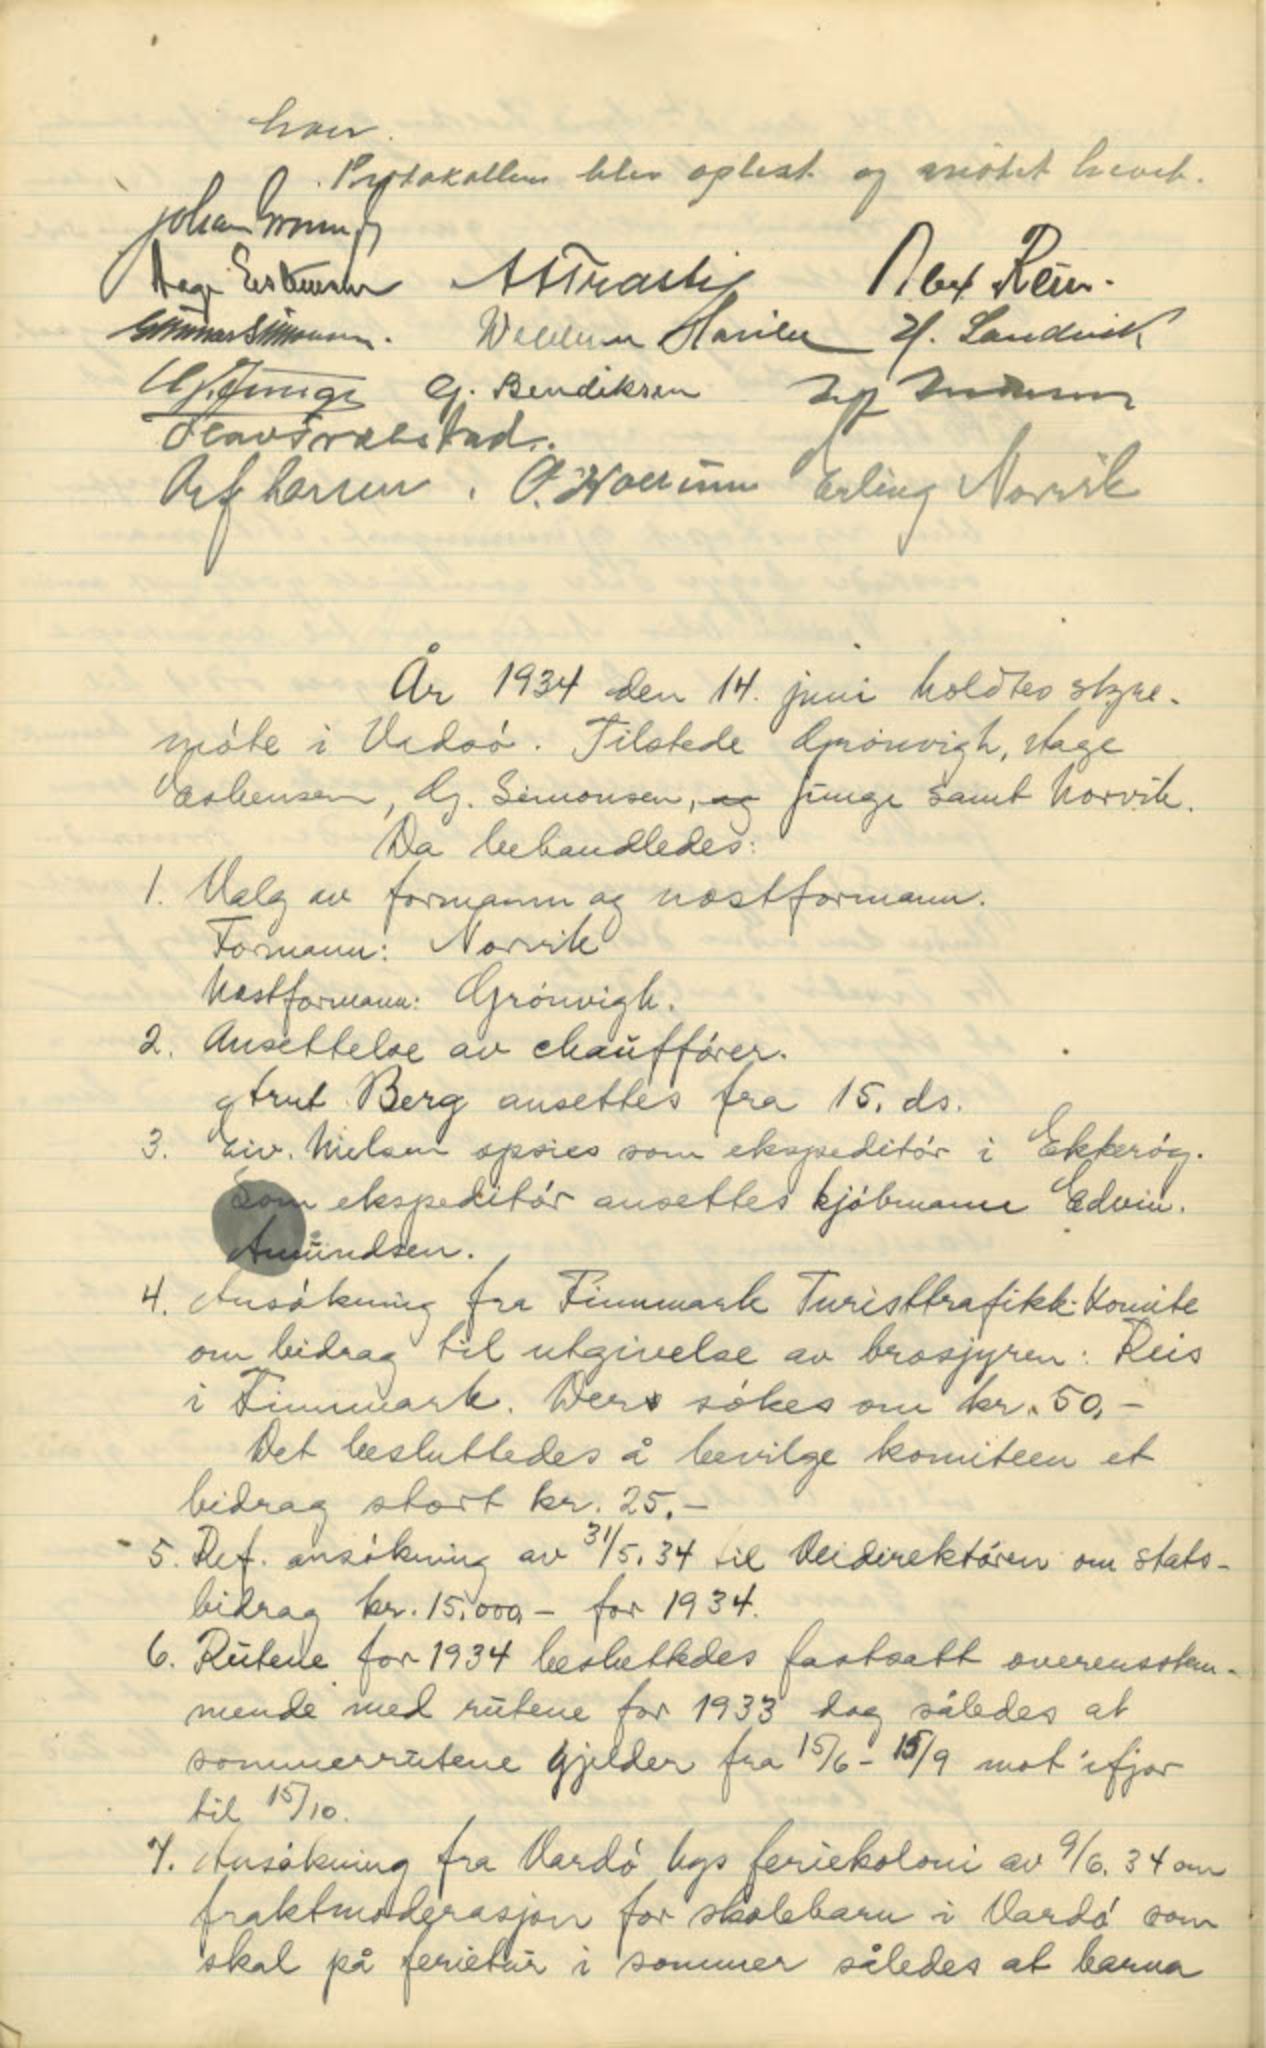 Protokollen blev oplest og møtet hevet.
Alex Rein.
Gunnar Simonsen. H. Sandvik
G. Bendiksen
Larsen Erling Norvik
År 1934 den 14. juni holdtes styre-
møte i Vadsø. Tilstede Grønvigh, Hage
Eskensen, G. Simonsen, og Junge samt Norvik.
Da behandledes:
1. Valg av formann og næstformann.
Formann: Norvik
Næstformann: Grønvigh.
2. Ansettelse av chauffører.
Arnt Berg ansettes fra 15. ds.
3. Eiv. Nielsen opsies som ekspeditør i Ekkerøy.
Som ekspeditør ansettes kjøbmann Edvin.
Amundsen.
4. Ansøkning fra Finnmark Turisttrafikk-Komite
om bidrag til utgivelse av brosjyren: Reis
i Finnmark. Der søkes om kr. 50,-
Det besluttedes å bevilge komiteen et
bidrag stort kr. 25.-
5. Ref. ansøkning av 31/5.34 til Veidirektøren om stats-
bidrag kr. 15.000,- for 1934.
6. Rutene for 1934 besluttedes fastsatt overensstem-
mende med rutene for 1933 dog således at
sommerrutene gjelder fra 15/6 - 15/9 mot ifjor
til 15/10.
7. Ansøkning fra Vardø bys feriekoloni av 9/6.34 om
fraktmoderasjon for skolebarn i Vardø som
skal på ferietur i sommer således at barna